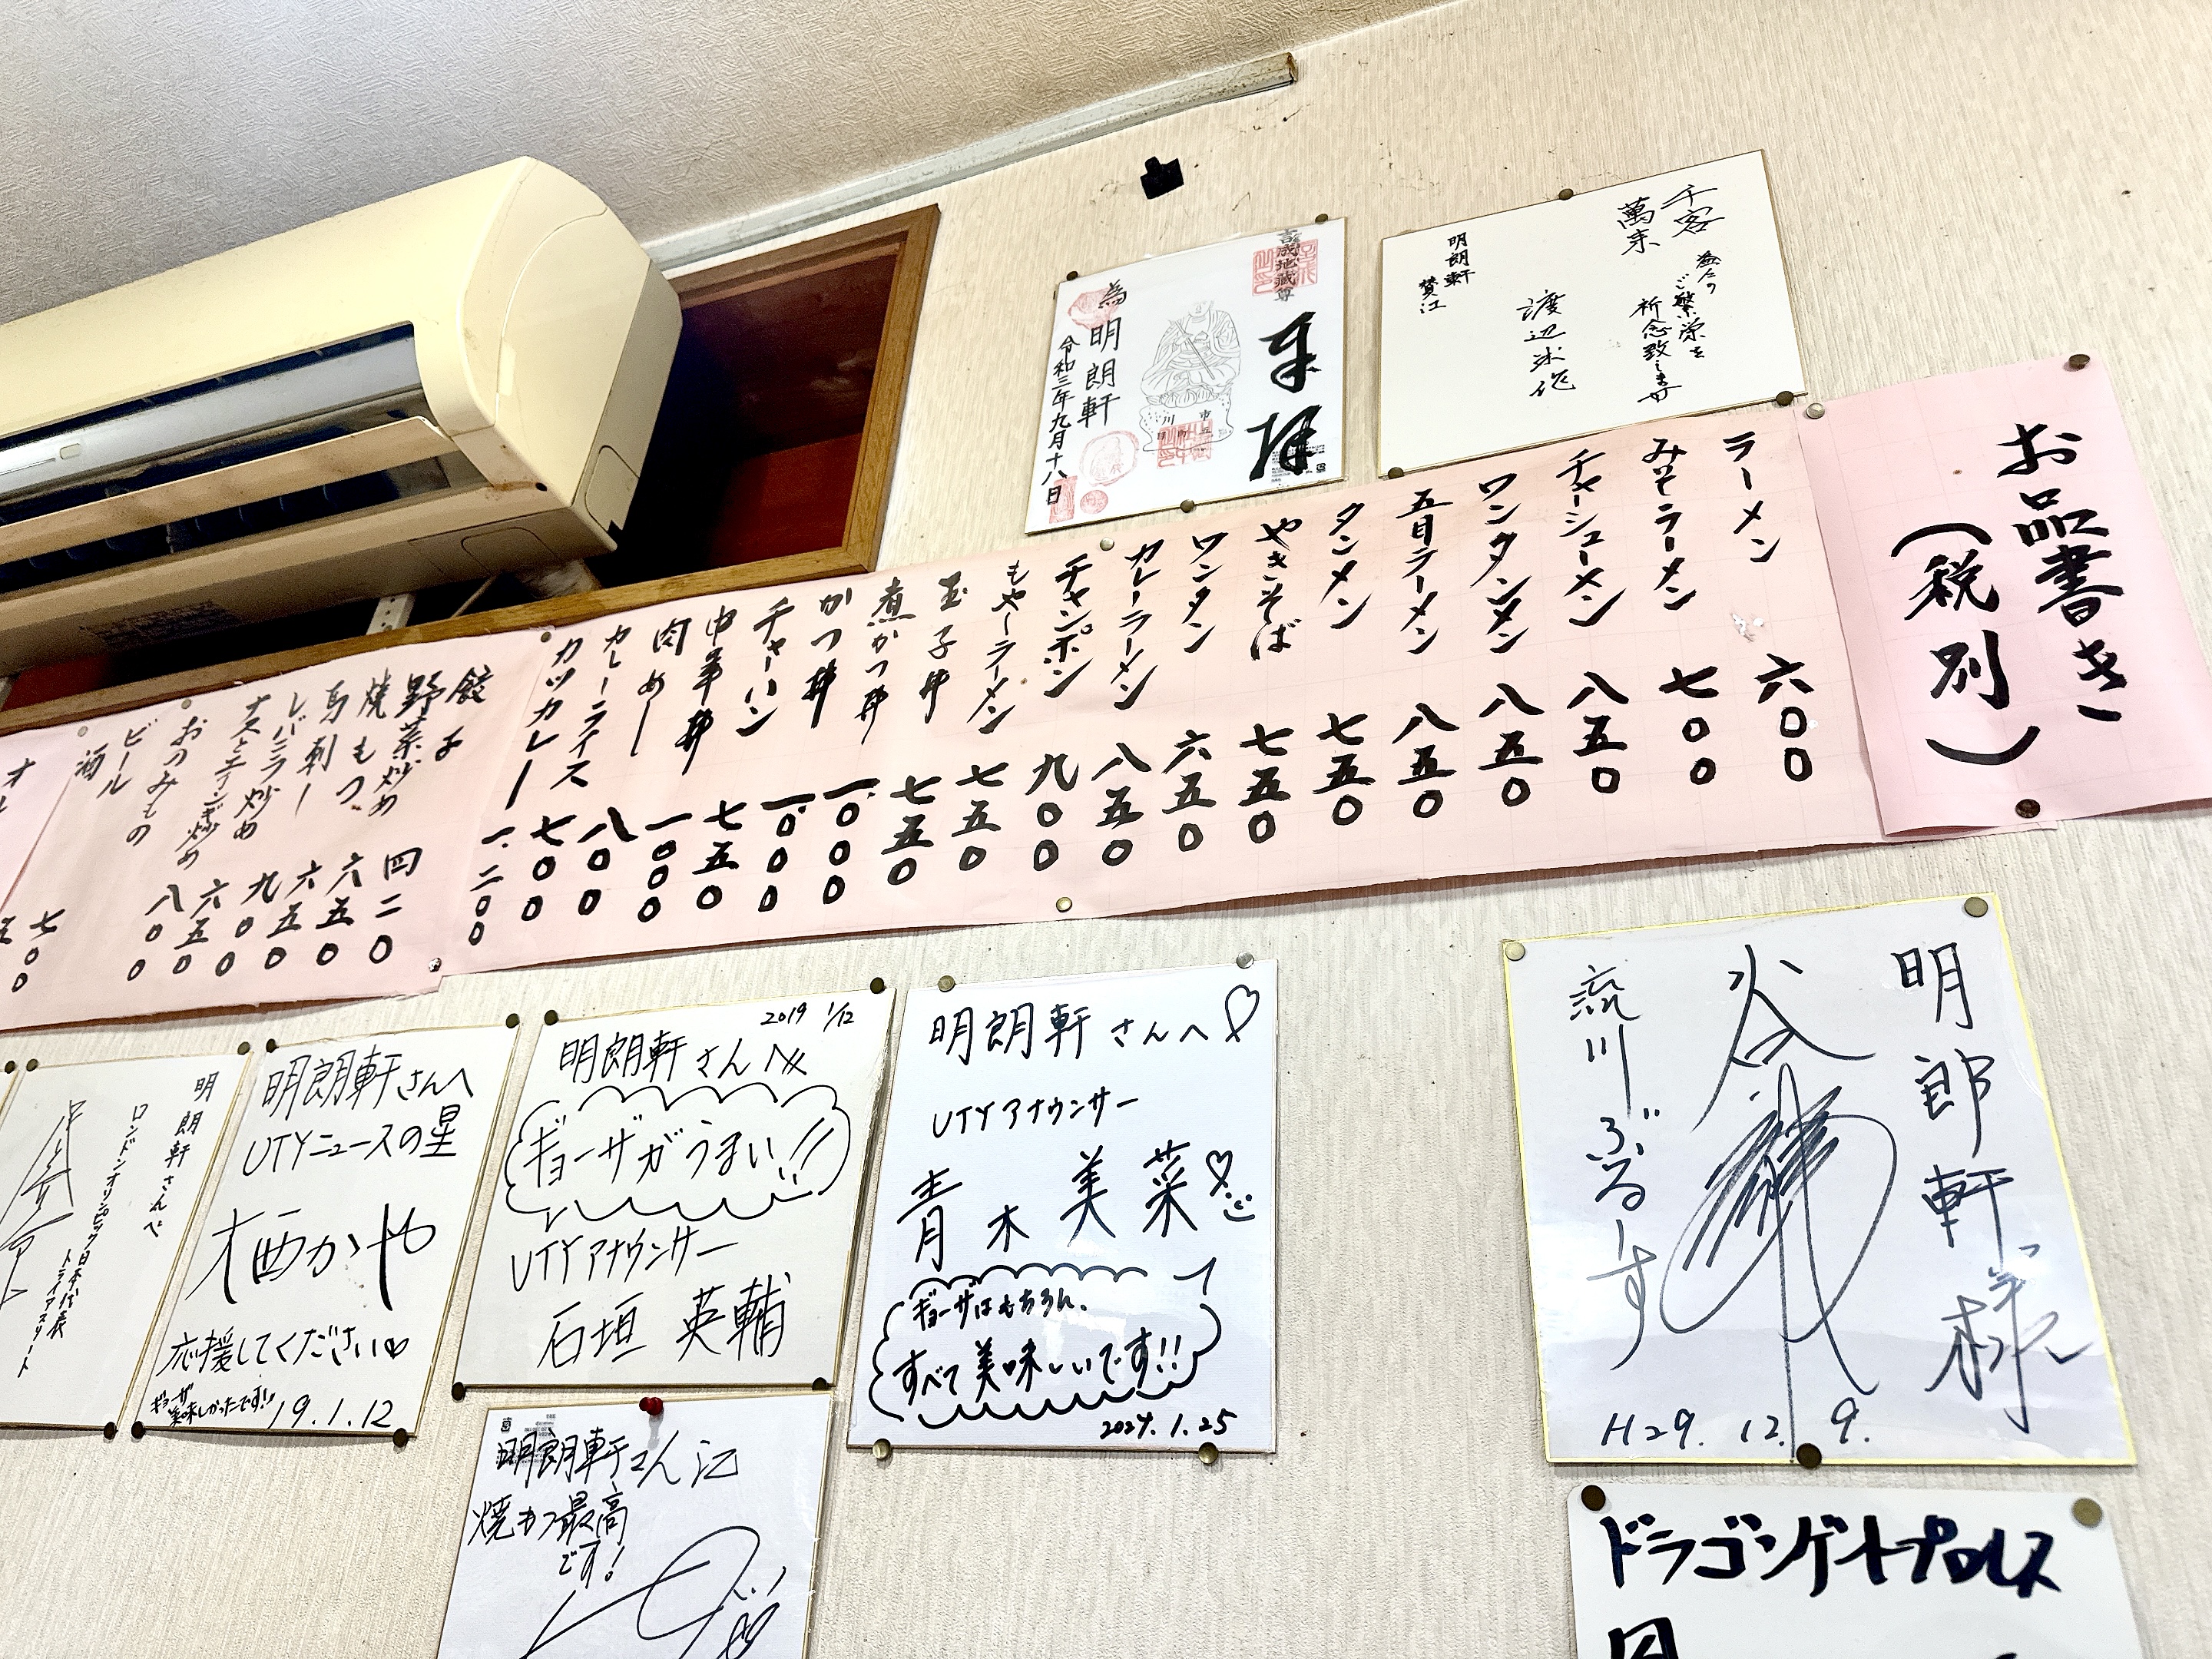 お品書き
（税別）
ラーメン 六〇〇
みそラーメン 七〇〇
チャーシューメン 八五〇
ワンタンメン 八五〇
五目ラーメン 八五〇
タンメン 七五〇
やきそば 七五〇
ワンタン 六五〇
カレーラーメン 八五〇
チャンポン 九〇〇
もやしラーメン 七五〇
玉子丼 七五〇
煮かつ丼 一.〇〇〇
かつ丼 一.〇〇〇
チャーハン 七五〇
中華丼 一〇〇〇
肉めし 八〇〇
カレーライス 七〇〇
カツカレー 一.二〇〇
餃子 四二〇
野菜炒め 六五〇
焼もつ 六五〇
馬刺し 九〇〇
レバニラ炒め 六五〇
ナスとエリンギ炒め 八〇〇
おのみもの
ビール 七〇〇
酒
千客
萬来
益々の
ご繁栄を
祈念致します
明朗軒
賛江
吉成地蔵尊
奉拝
為 明朗軒
令和三年九月十八日
明郎軒様
流川ぶるーす
H29.12.9.
ドラゴンゲートプロレス
明朗軒さんへ
UTYアナウンサー
青木美菜
ギョーザはもちろん、
すべて美味しいです!!
2024.1.25
2019 1/12
明朗軒さんへ
ギョーザがうまい!!
UTYアナウンサー
石垣 英輔
明朗軒さん江
焼もつ最高
です!
明朗軒さんへ
UTYニュースの星
栖かや
応援してください
ギョーザ
美味しかったです!!
19.1.12
明朗軒さんへ
ロンドンオリンピック日本代表
トライアスリート